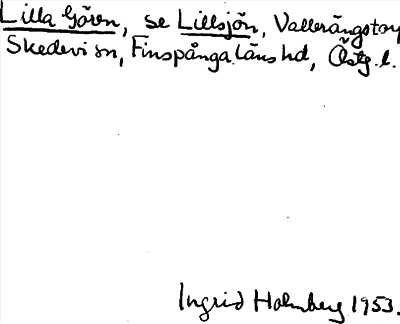 Lilla Gören, se Lillsjön, Vallerängstorp
Skedevi sn, Finspånga läns hd, Östg. l.
Ingrid Holmberg 1953.